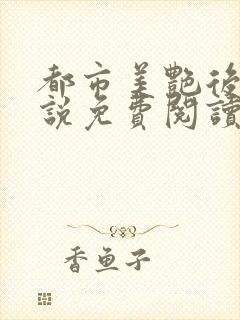 都市美艷後
說免費閱讀
香魚子